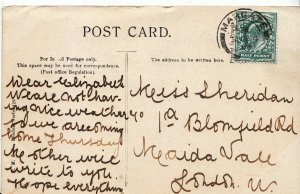 POST CARD.
For Inland Postage only.
This space may be used for correspondence.
(Post office Regulation).
The address to be written here.
HALF PENNY
Dear Elizabeth
We are not hav
ing nice weather
We are coming
home Thursday
Mother will
write to you.
Hope everything
Miss Sheridan
1a Blomfield Rd
Maida Vale
London. W.